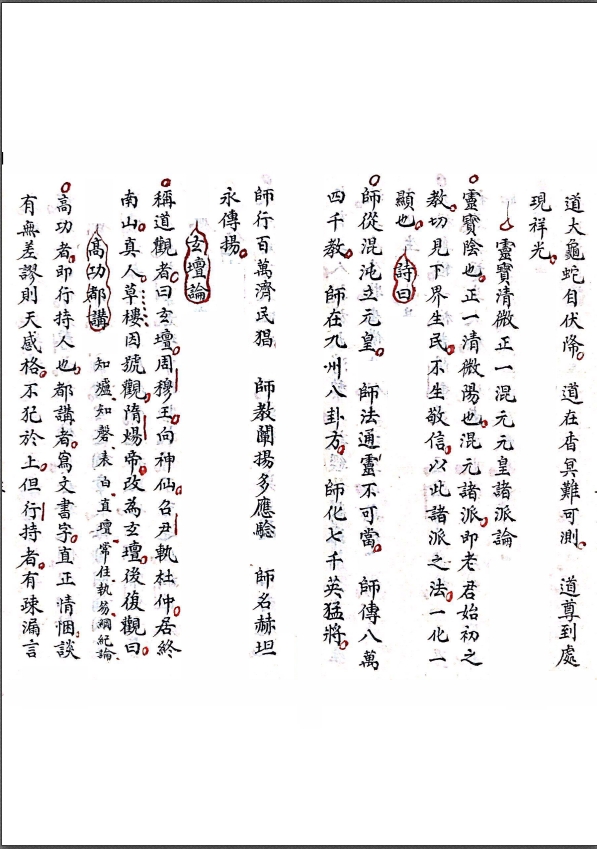 道大龜蛇自伏降 道在杳冥難可測 道尊到處
現祥光
靈寶清微正一混元元皇諸派論
靈寶陰也正一清微陽也混元諸派即老君始初之
教切見下界生民不生敬信以此諸派之法一化一
顯也 詩曰
師從混沌立元皇 師法通靈不可當 師傳八萬
四千教 師在九州八卦方 師化七千英猛將
師行百萬濟民猖 師教闡揚多應驗 師名赫坦
永傳揚
玄壇論
稱道觀者曰玄壇周穆王向神仙召尹軌杜仲居終
南山真人草樓因號觀隋煬帝改為玄壇後復觀曰
高功都講 知爐知磬表白直壇常住執芴綱紀論
高功者即行持人也都講者寫文書字直正情悃談
有無差謬則天感格不犯於上但行持者有疎漏言